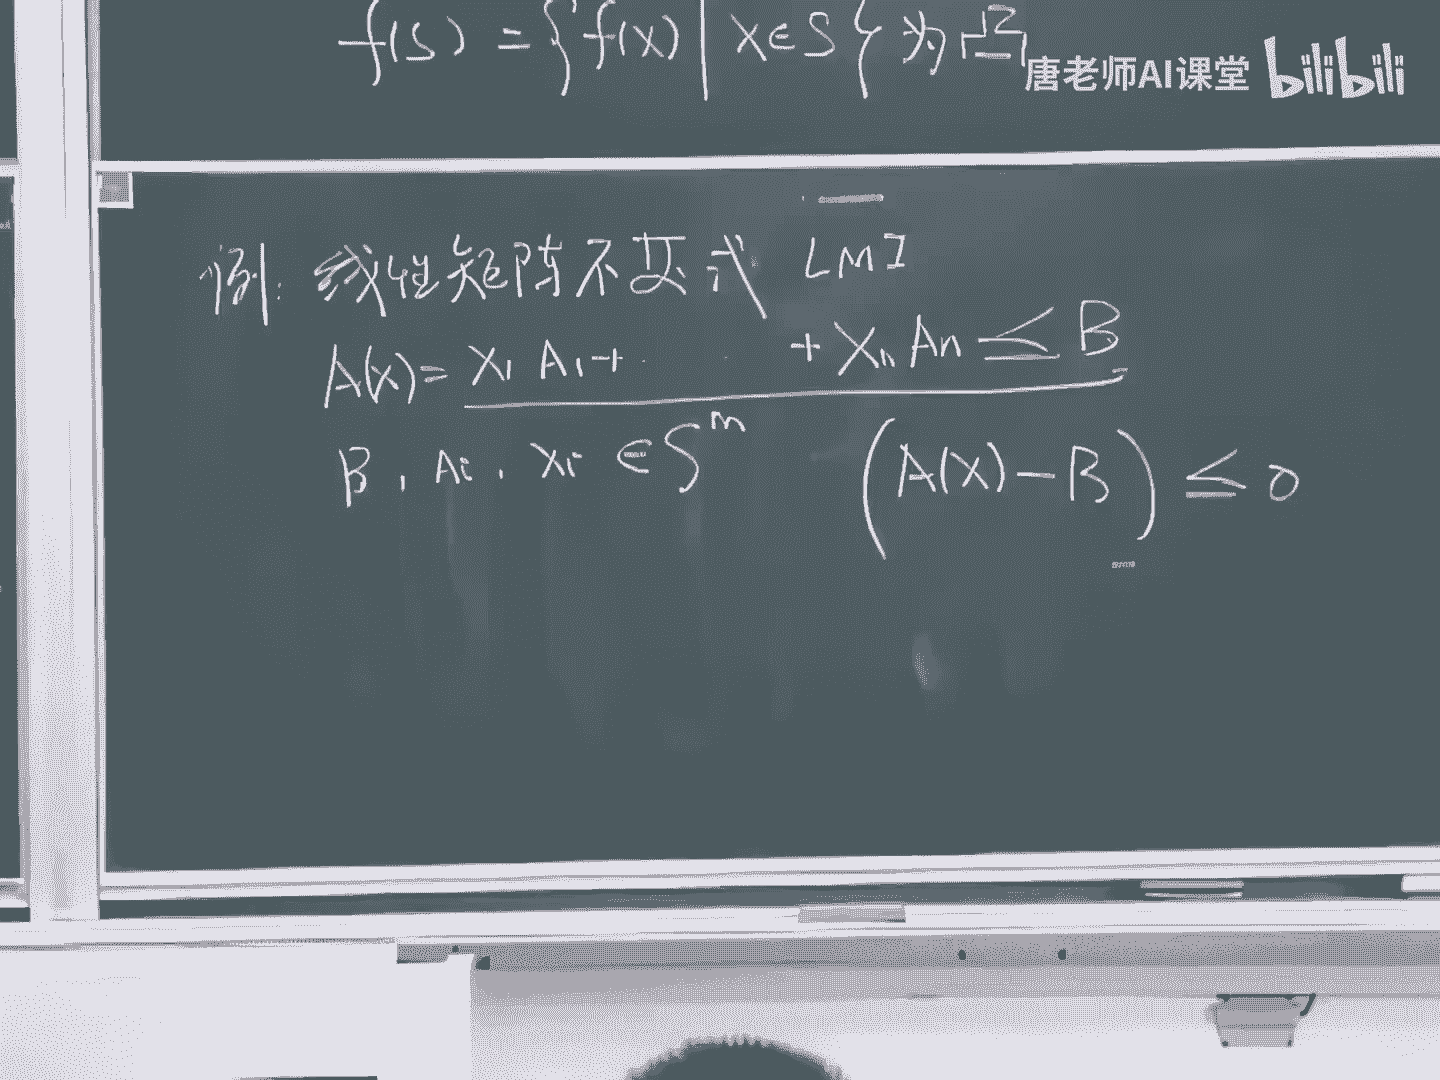 f(S) = { f(x) | x∈S } 为凸
唐老师AI课堂 bilibili
例: 线性矩阵不等式 LMI
A(x) = x₁ A₁ + · · + xₙ Aₙ ≤ B
B , Ai , xi ∈ Sᵐ (A(x) − B) ≤ 0